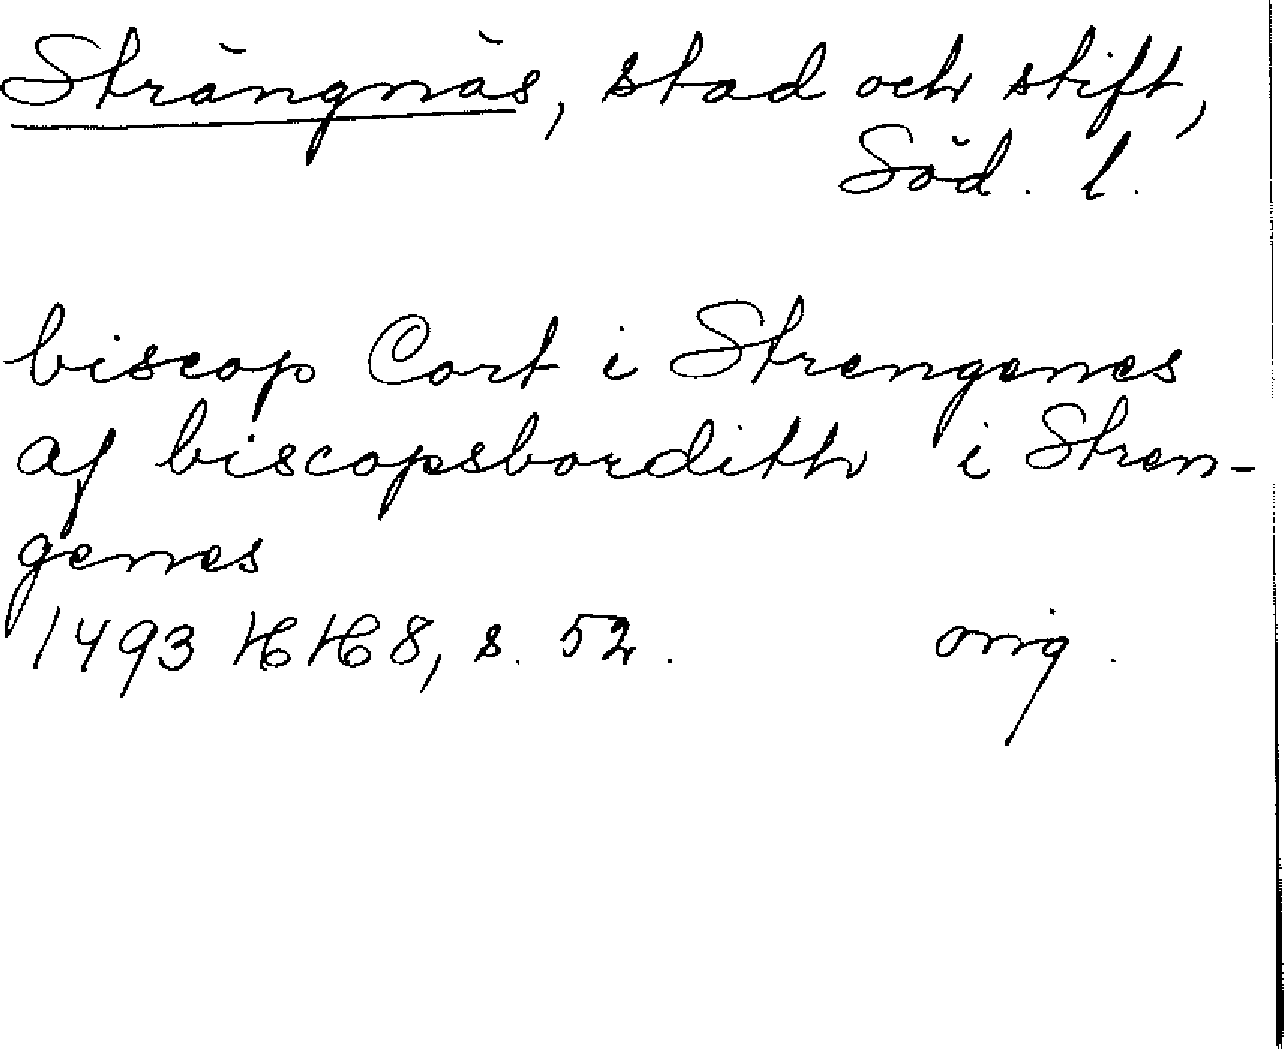 Strängnäs, stad och stift,
Söd. l.
biscop Cort i Strengenes
af biscopsbordith i Stren-
genes
1493 HH 8, s. 52. orig.